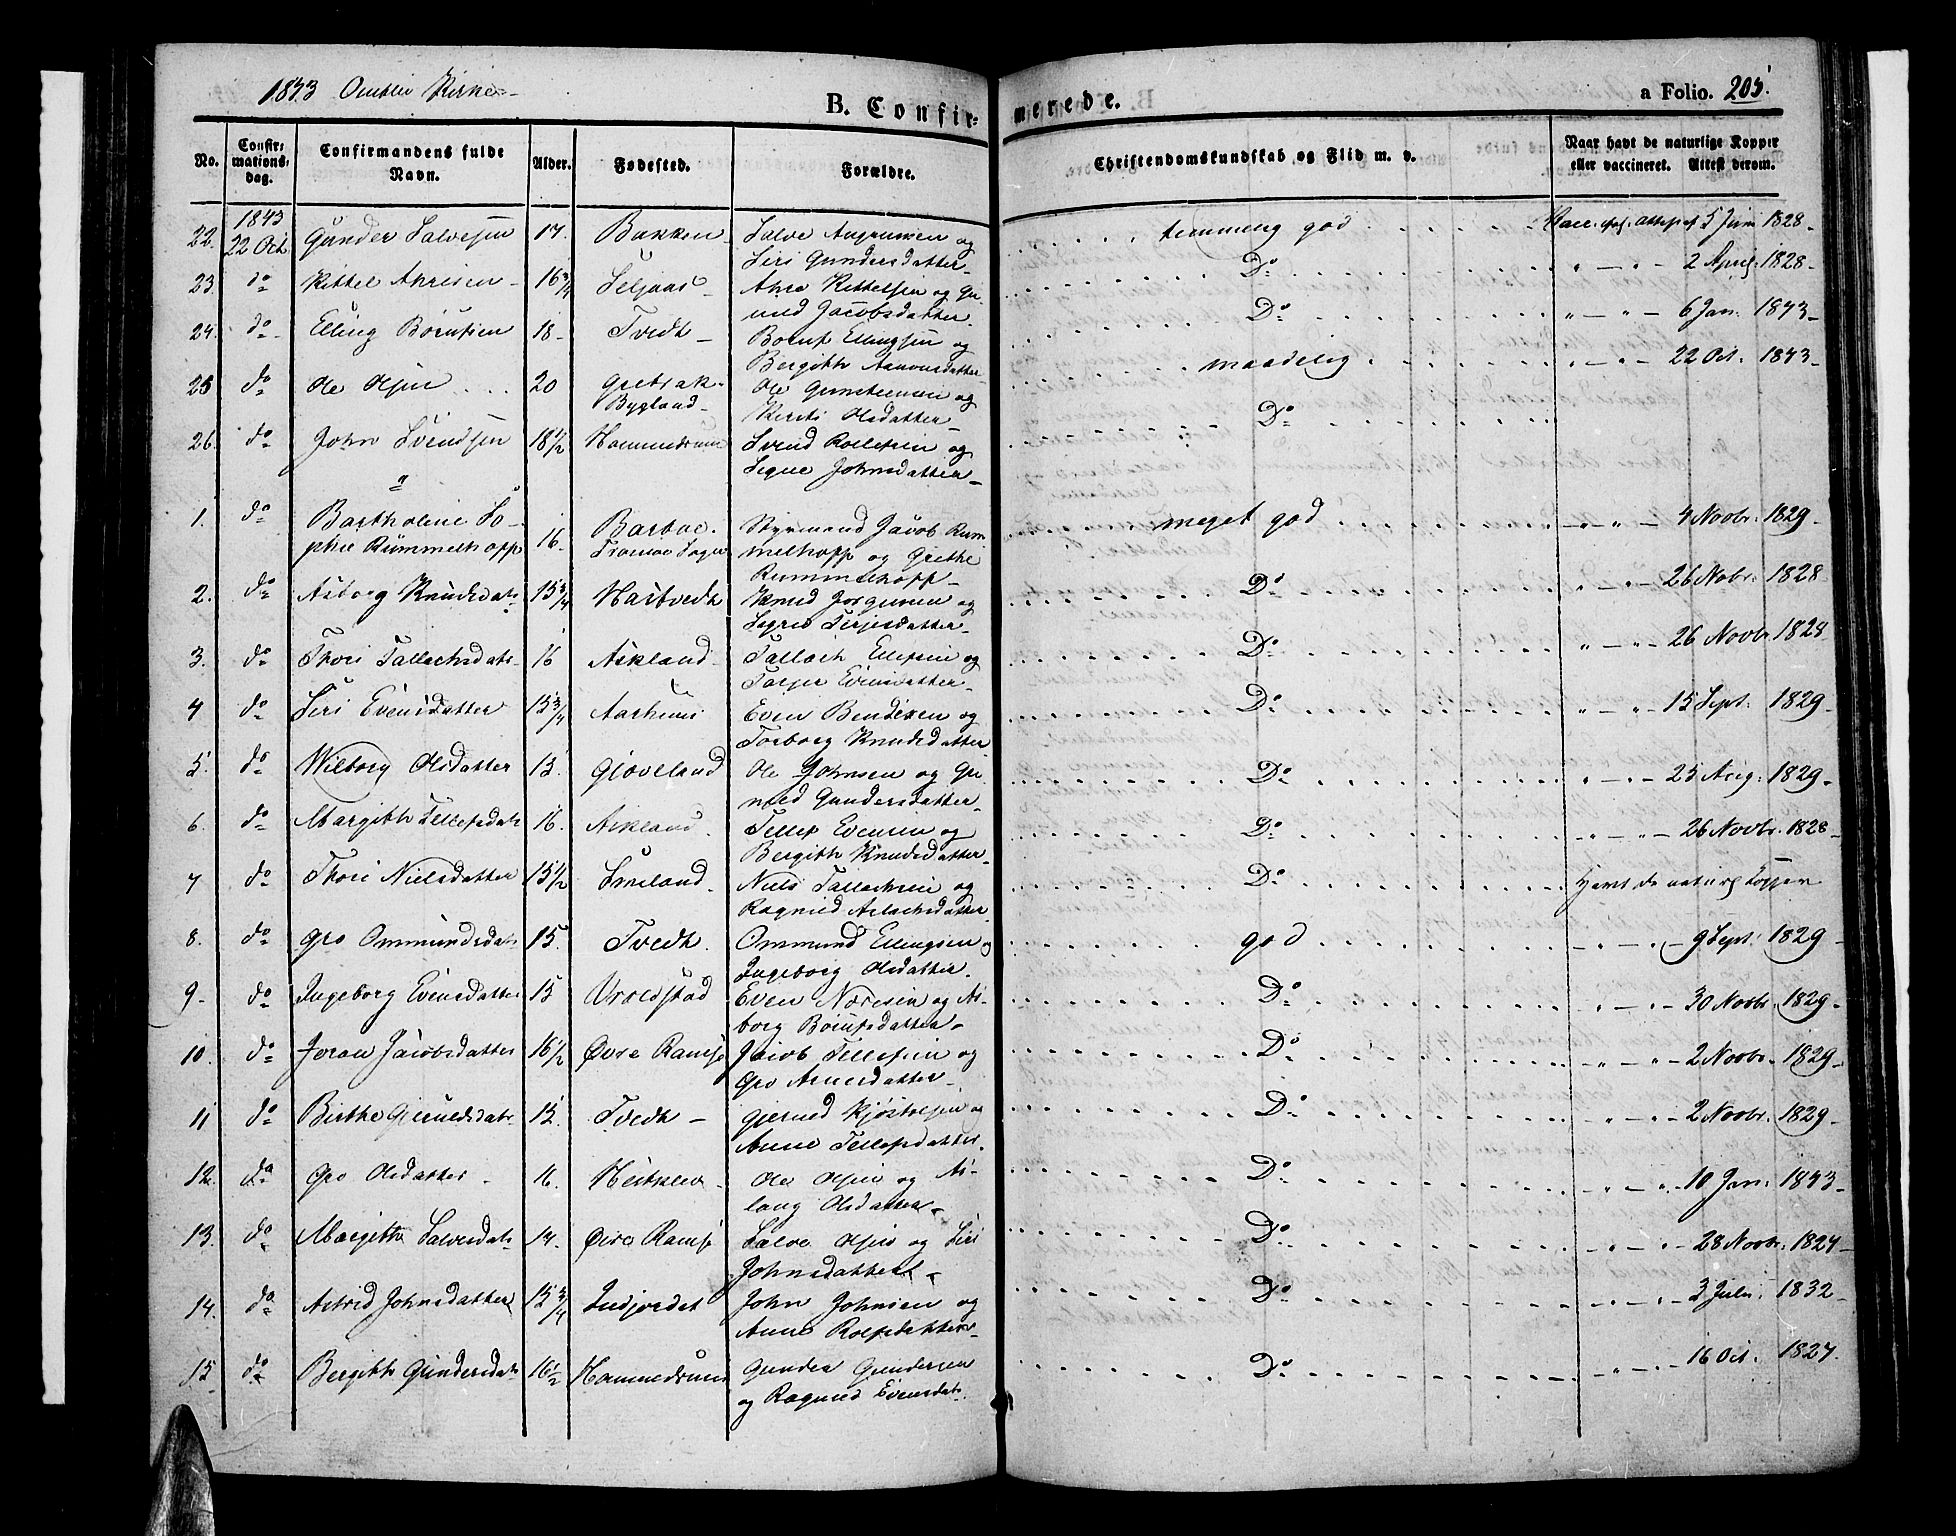 1843 Omblie Kirke
B. Confirmerede.
a Folio. 205.
No. Confirmationsdag. Confirmandens fulde Navn. Alder. Fødested. Forældre. Christendomskundskab og Flid m. v. Naar havt de naturlige Kopper eller vaccineret. Attest derom.
22. 1843 22 Oct. Gunder Salvesen 17. Bakken Salve Aagrimsen og temmelig god 5 Juni 1828
Siri Gundersdatter
23. do Kittel Anresen 16 3/4 Seljaas Anre Kittelsen og Gu- Do 2 April 1828
ned Jacobsdatter
24. do Elling Børufsen 18 Tvedt Boruf Ellingsen og Do 6 Jan. 1843
Bergith Aanonsdatter
25 do Ole Olsen 20 Bygland Ole Gunsteensen og maadelig 22 Oct. 1843
Kirsti Olsdatter
26. do John Svendsen 18 1/2 Hommedrum Svend Rolefsen og Do
Signe Johnsdatter
1. do Bartholine So- 16 Barboe Styrmand Jacob Rum meget god 4 Novbr. 1829
phie Rummelhopp Tromøe Sogn melhopp og Grethe
Rummelhopp
2. do Asborg Knudsdatr 15 3/4 Hastvedt Knud Jorgensen og Do 26 Nobr. 1828
Sigrid Terjesdatter
3. do Thori Tallachsdatr 16 Askland Tallach Ellefsen og Do 26 Novbr 1828
Torjer Evensdatter
4 do Siri Evensdatter 15 3/4 Aarhuus Even Bendixen og Do 15 Sept. 1829
Torborg Knudsdatter
5. do Wilborg Olsdatter 15. Gjøveland Ole Johnsen og Gu Do 25 Aug. 1829
ned Gundersdatter
6. do Margith Tellefsdatr 16. Askland Tellef Evensen og Do 26 Novbr. 1828
Bergith Knudsdatter
7 do Thore Nielsdatter 15 1/2 Smeland Niels Tallachsen og Do Havt de naturl Kopper
Ragnild Aslachsdatter
8. do Gro Ommundsdatr 15. Tvedt Ommund Ellingsen og god 9 Sept. 1829
Ingeborg Olsdatter
9 do Ingeborg Evensdatter 15 Vroldstad Even Noresen og As- Do 30 Novbr. 1829
borg Børufsdatter
10. do Joran Jacobsdatter 16 1/2 Øvre Ramse Jacob Tellefsen og Do 2 Novbr. 1829
Gro Arnesdatter
11 do Birthe Gjeruldsdatr 15. Tvedt Gjeruld Kjøstolsen og Do 2 Novbr. 1829
Anne Tellefsdatter
12. do Gro Olsdatter 16. Heitklev Ole Olsen og As- Do 10 Jan. 1843
laug Olsdatter
13. do Margith Salvesdatr 17. Øvre Ramse Salve Olsen og Siri Do 28 Novbr. 1827
Johnsdatter
14. do Astrid Johnsdatter 15 3/4 Indjordet John Johnsen og Do 3 Juli 1832
Anne Rolfsdatter
15 do Bergith Gundersdatr 16 1/2 Hommedrum Gunder Gundersen Do 16 Oct. 1827
og Ragnild Evensdatr